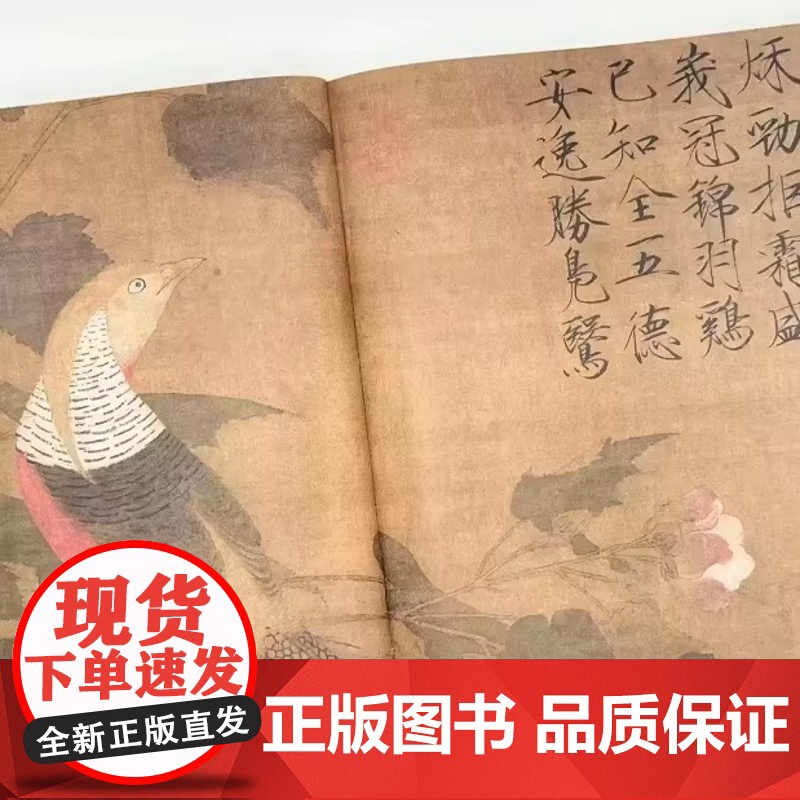 秋勁拒霜盛
峩冠錦羽鷄
已知全五德
安逸勝鳧鷖
现货
下单速发
全新正版直发
正版图书 品质保证